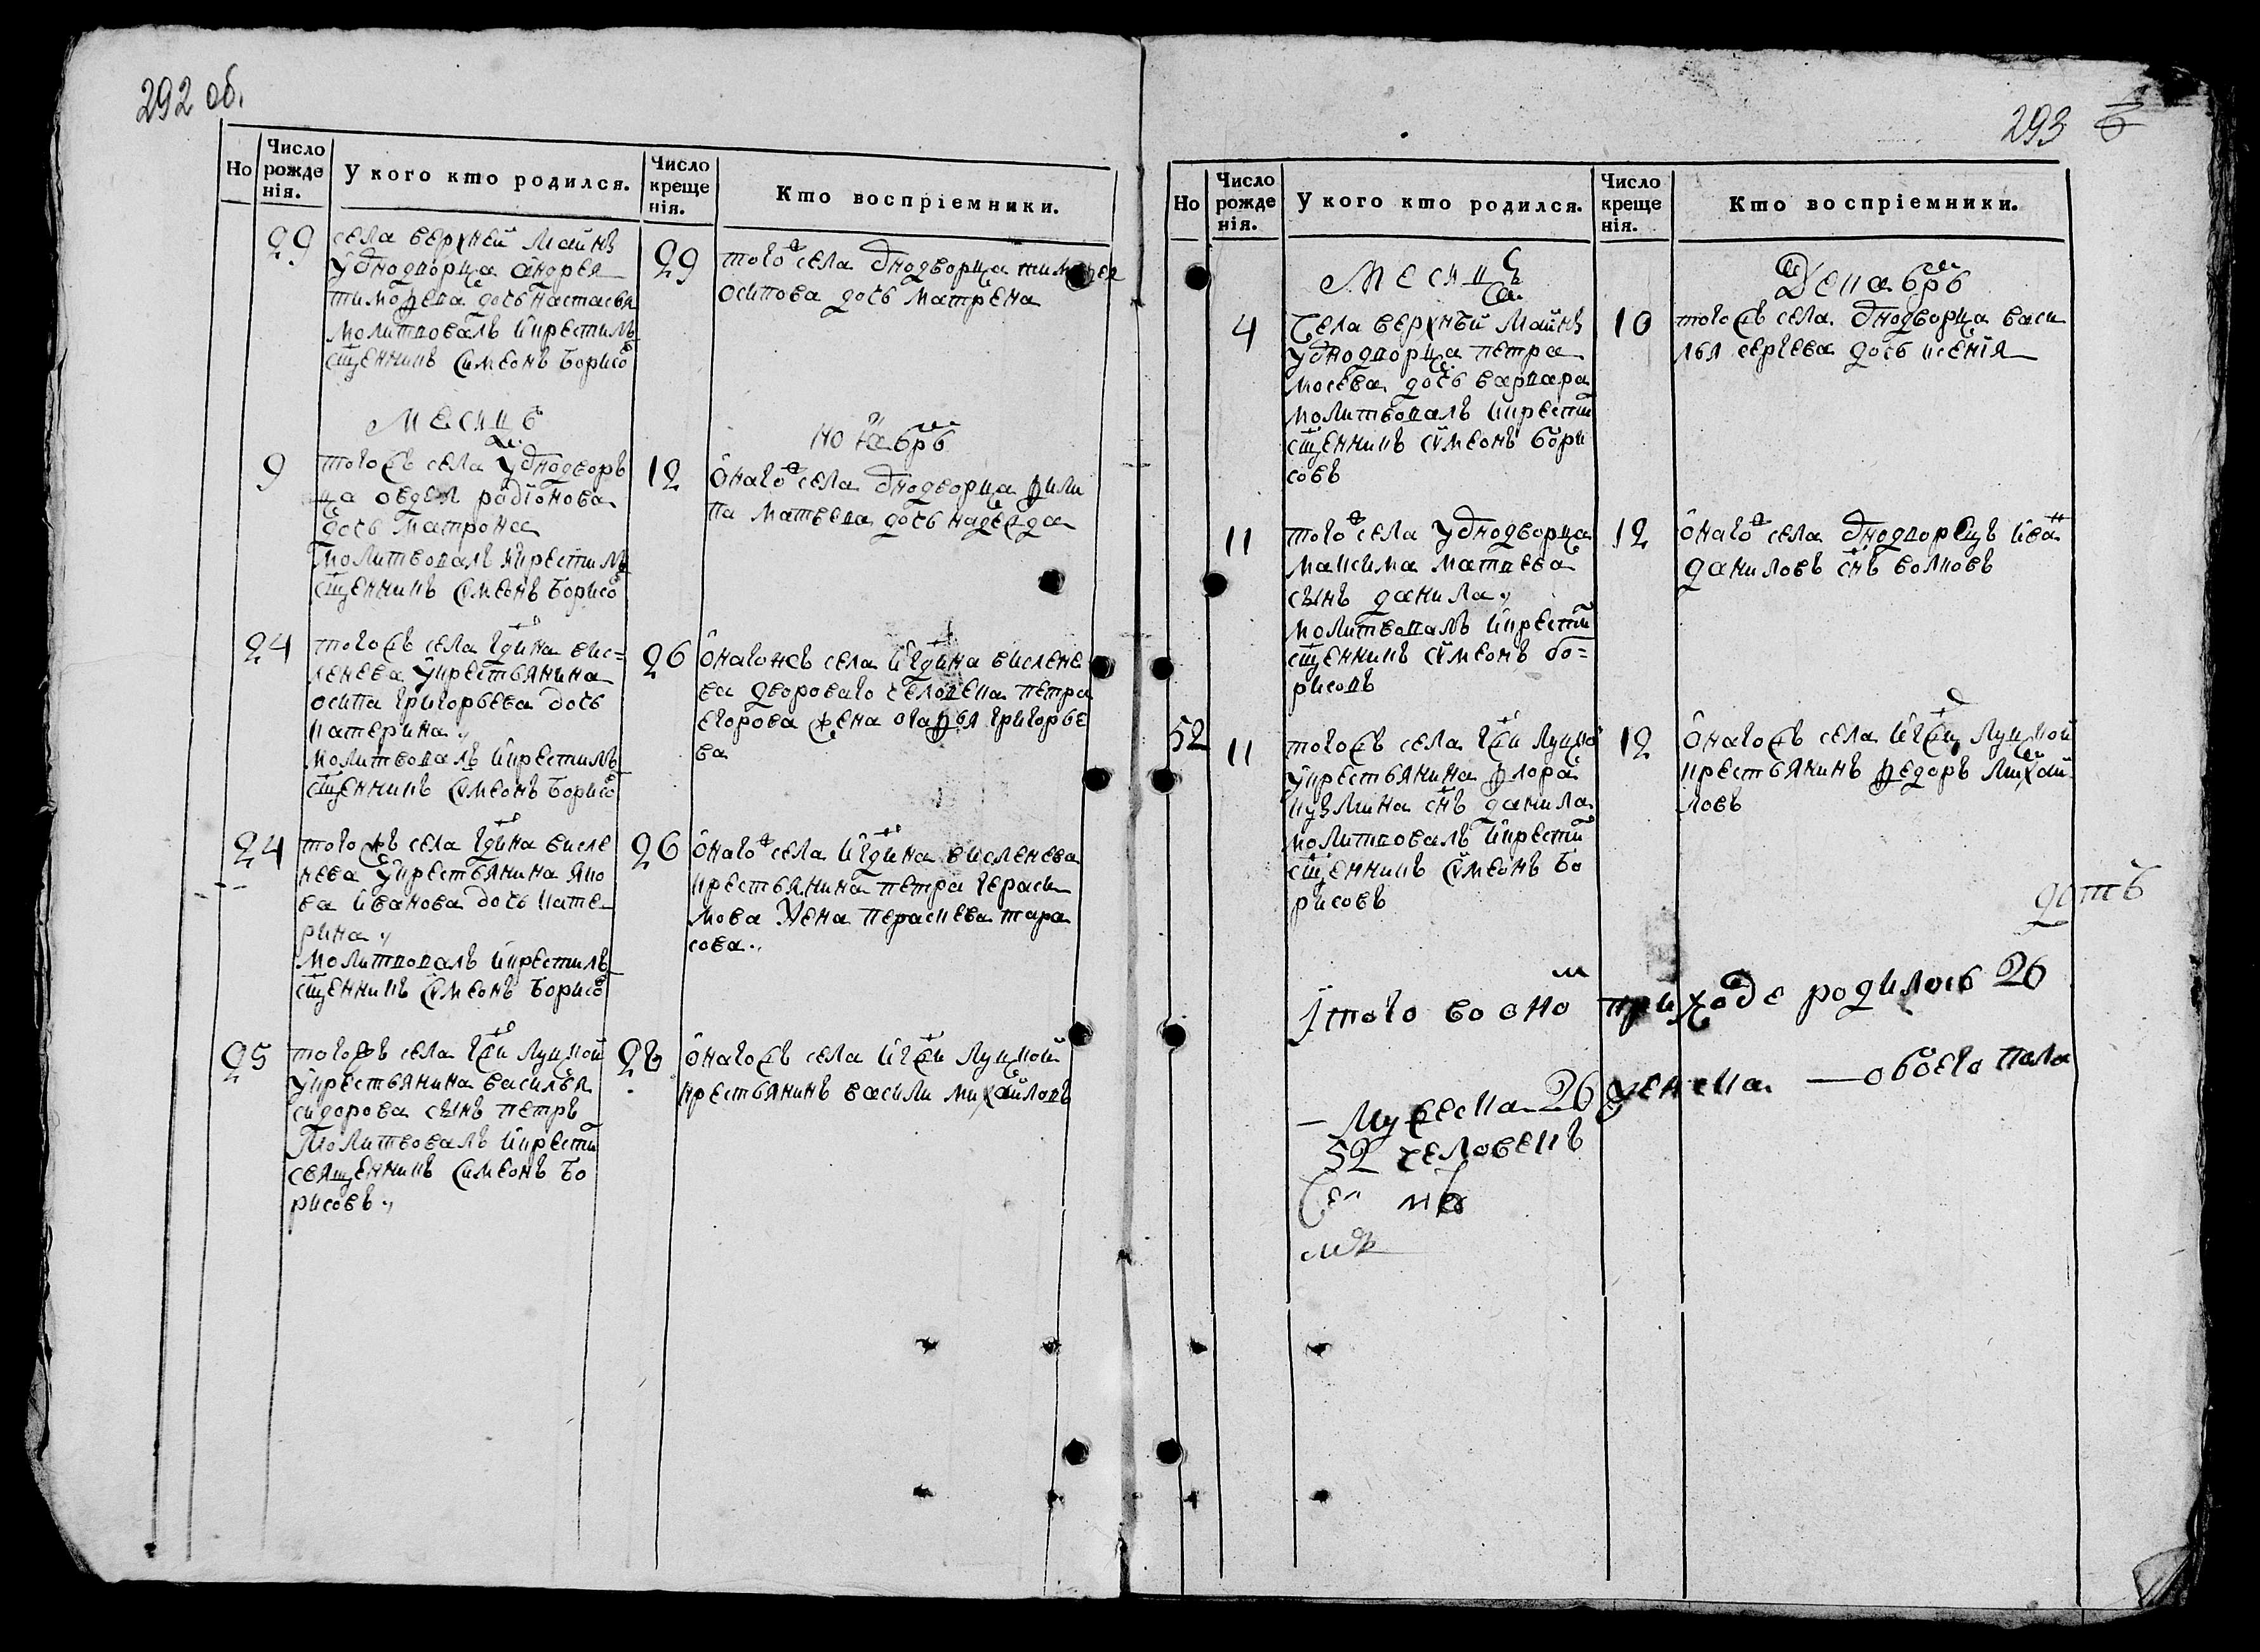 292 об.
Но
Число рожде нія.
У кого кто родился.
Число креще нія.
Кто воспріемники.
29
села верхней Маинъ
уоднодворца андрея
тимофеева дочь настасья
молитвовалъ икрестилъ
сщенникъ Симеонъ Борисо
29
того села однодворца
осипова дочь матрена
Месяцъ
ноябрь
9
тогожъ села уоднодворъ
ца авдея радионова
дочь матрона
молитвовалъ икрестилъ
сщенникъ Симеонъ Борисо
12
онаго села однодворца фили
па матвеева дочь надежда
24
тогожъ села гдина вис=
ленева укрестьянина
осипа григорьева дочь
катерина
молитвовалъ икрестилъ
сщенникъ Симеонъ Борисо
26
онагожъ села игдина вислене
ва двороваго человека петра
егорова жена агафья григорье
ва
24
тогожъ села гдина висле
нева укрестьянина яко
ва иванова дочь кате
рина
молитвовалъ икрестилъ
сщенникъ Симеонъ Борисо
26
онаго села игдина висленева
крестьянина петра гераси
мова жена парасковева тара
сова
25
тогожъ села гжи луцкой
укрестьянина василья
сидорова сынъ петръ
молитвовалъ икрести
священникъ Симеонъ Бо
рисовъ
онагожъ села игжи луцкой
крестьянинъ васили михайловъ
293
Но
Число рожде нія.
У кого кто родился.
Число креще нія.
Кто воспріемники.
Месяцъ
Декабрь
4
Села верхней Маинъ
уоднодворца петра
мосева дочь варвара
молитвовалъ икрести
сщенникъ Симеонъ Бори
совъ
10
тогожъ села однодворца васи
лья сергеева дочь ксения
11
того села уоднодворца
максима матвева
сынъ данила
молитвовалъ икрести
сщенникъ Симеонъ бо=
рисовъ
12
онаго села однодворецъ иван
даниловъ снъ волковъ
52
11
тогожъ села гжи луцкой
укрестьянина флора
кузмина снъ данила
молитвовалъ икрести
сщенникъ Симеонъ Бо
рисовъ
12
онагожъ села игжи луцкой
крестьянинъ федоръ михаи
ловъ
Итого во оном приходе родилось 26
Мужеска 26 женска — обоего пола
52 человекъ